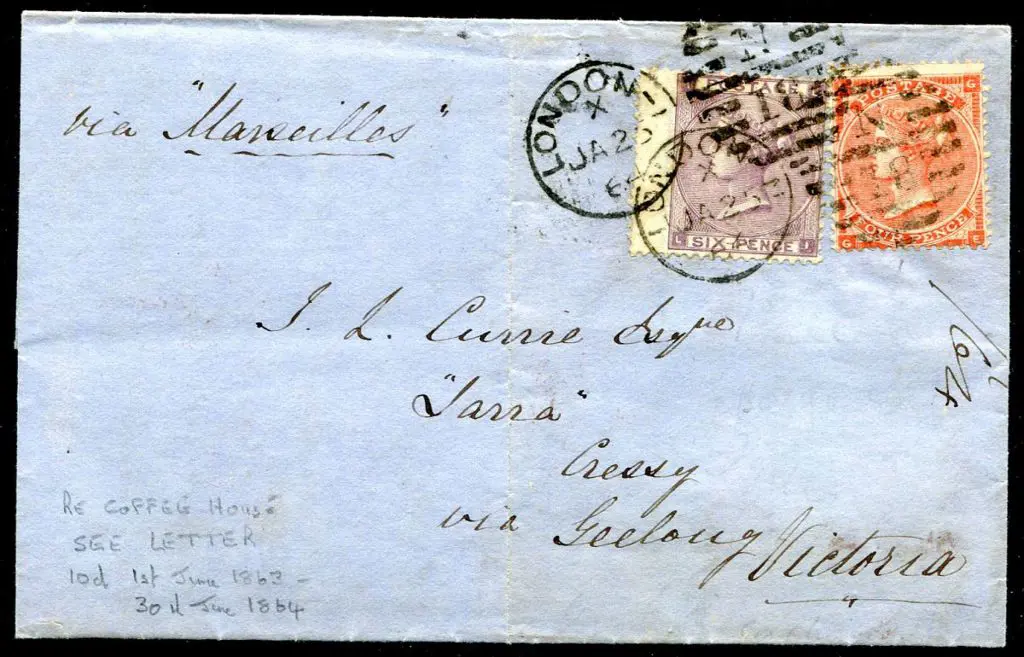 via "Marseilles"
LONDON
X
JA 2
6
LONDON
X
JA 25
POSTAGE
L SIX-PENCE J
G
POSTAGE
G FOUR PENCE E
J. L. Currie Esqre
"Larra"
Cressy
via Geelong
Victoria
RE COFFEE House
SEE LETTER
10d 1st June 1863 -
30th June 1864